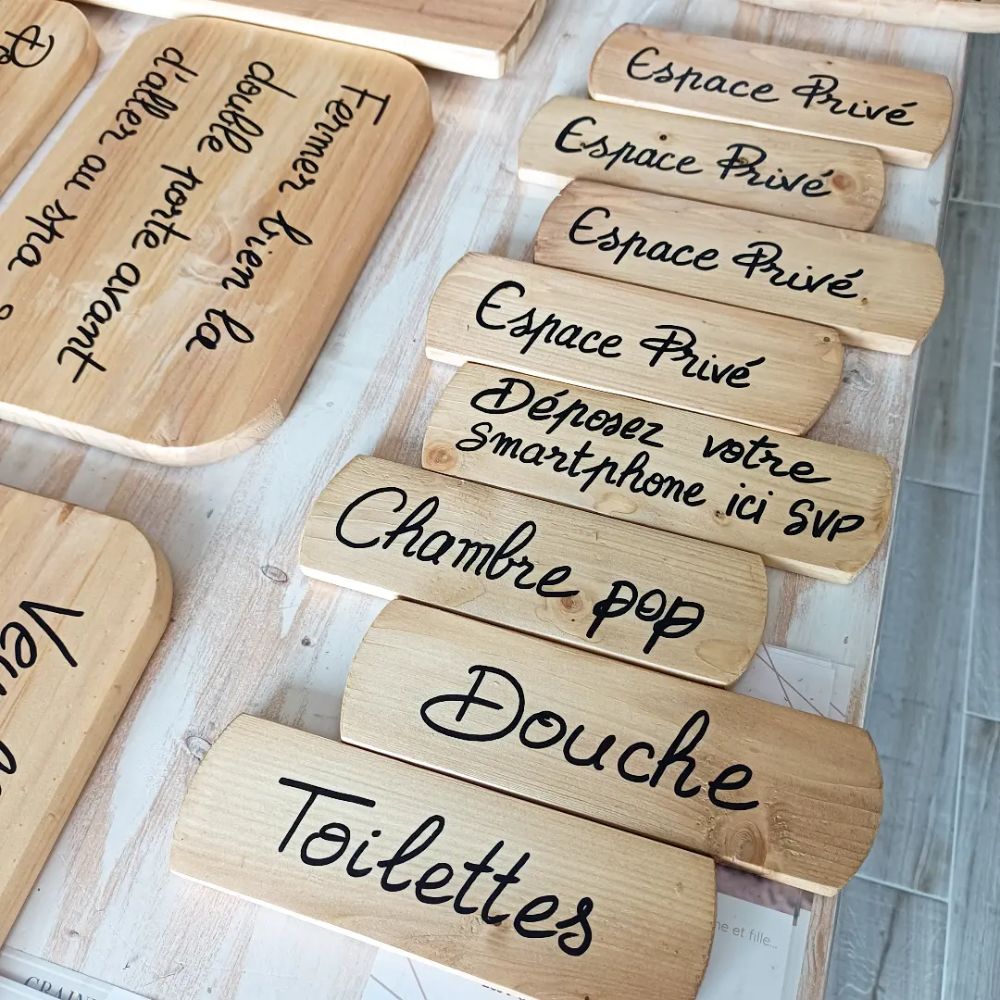 Espace Privé
Espace Privé
Espace Privé
Espace Privé
Déposez votre
smartphone ici SVP
Chambre pop
Douche
Toilettes
Fermer bien la
double porte avant
d'aller au spa
ne et fille...